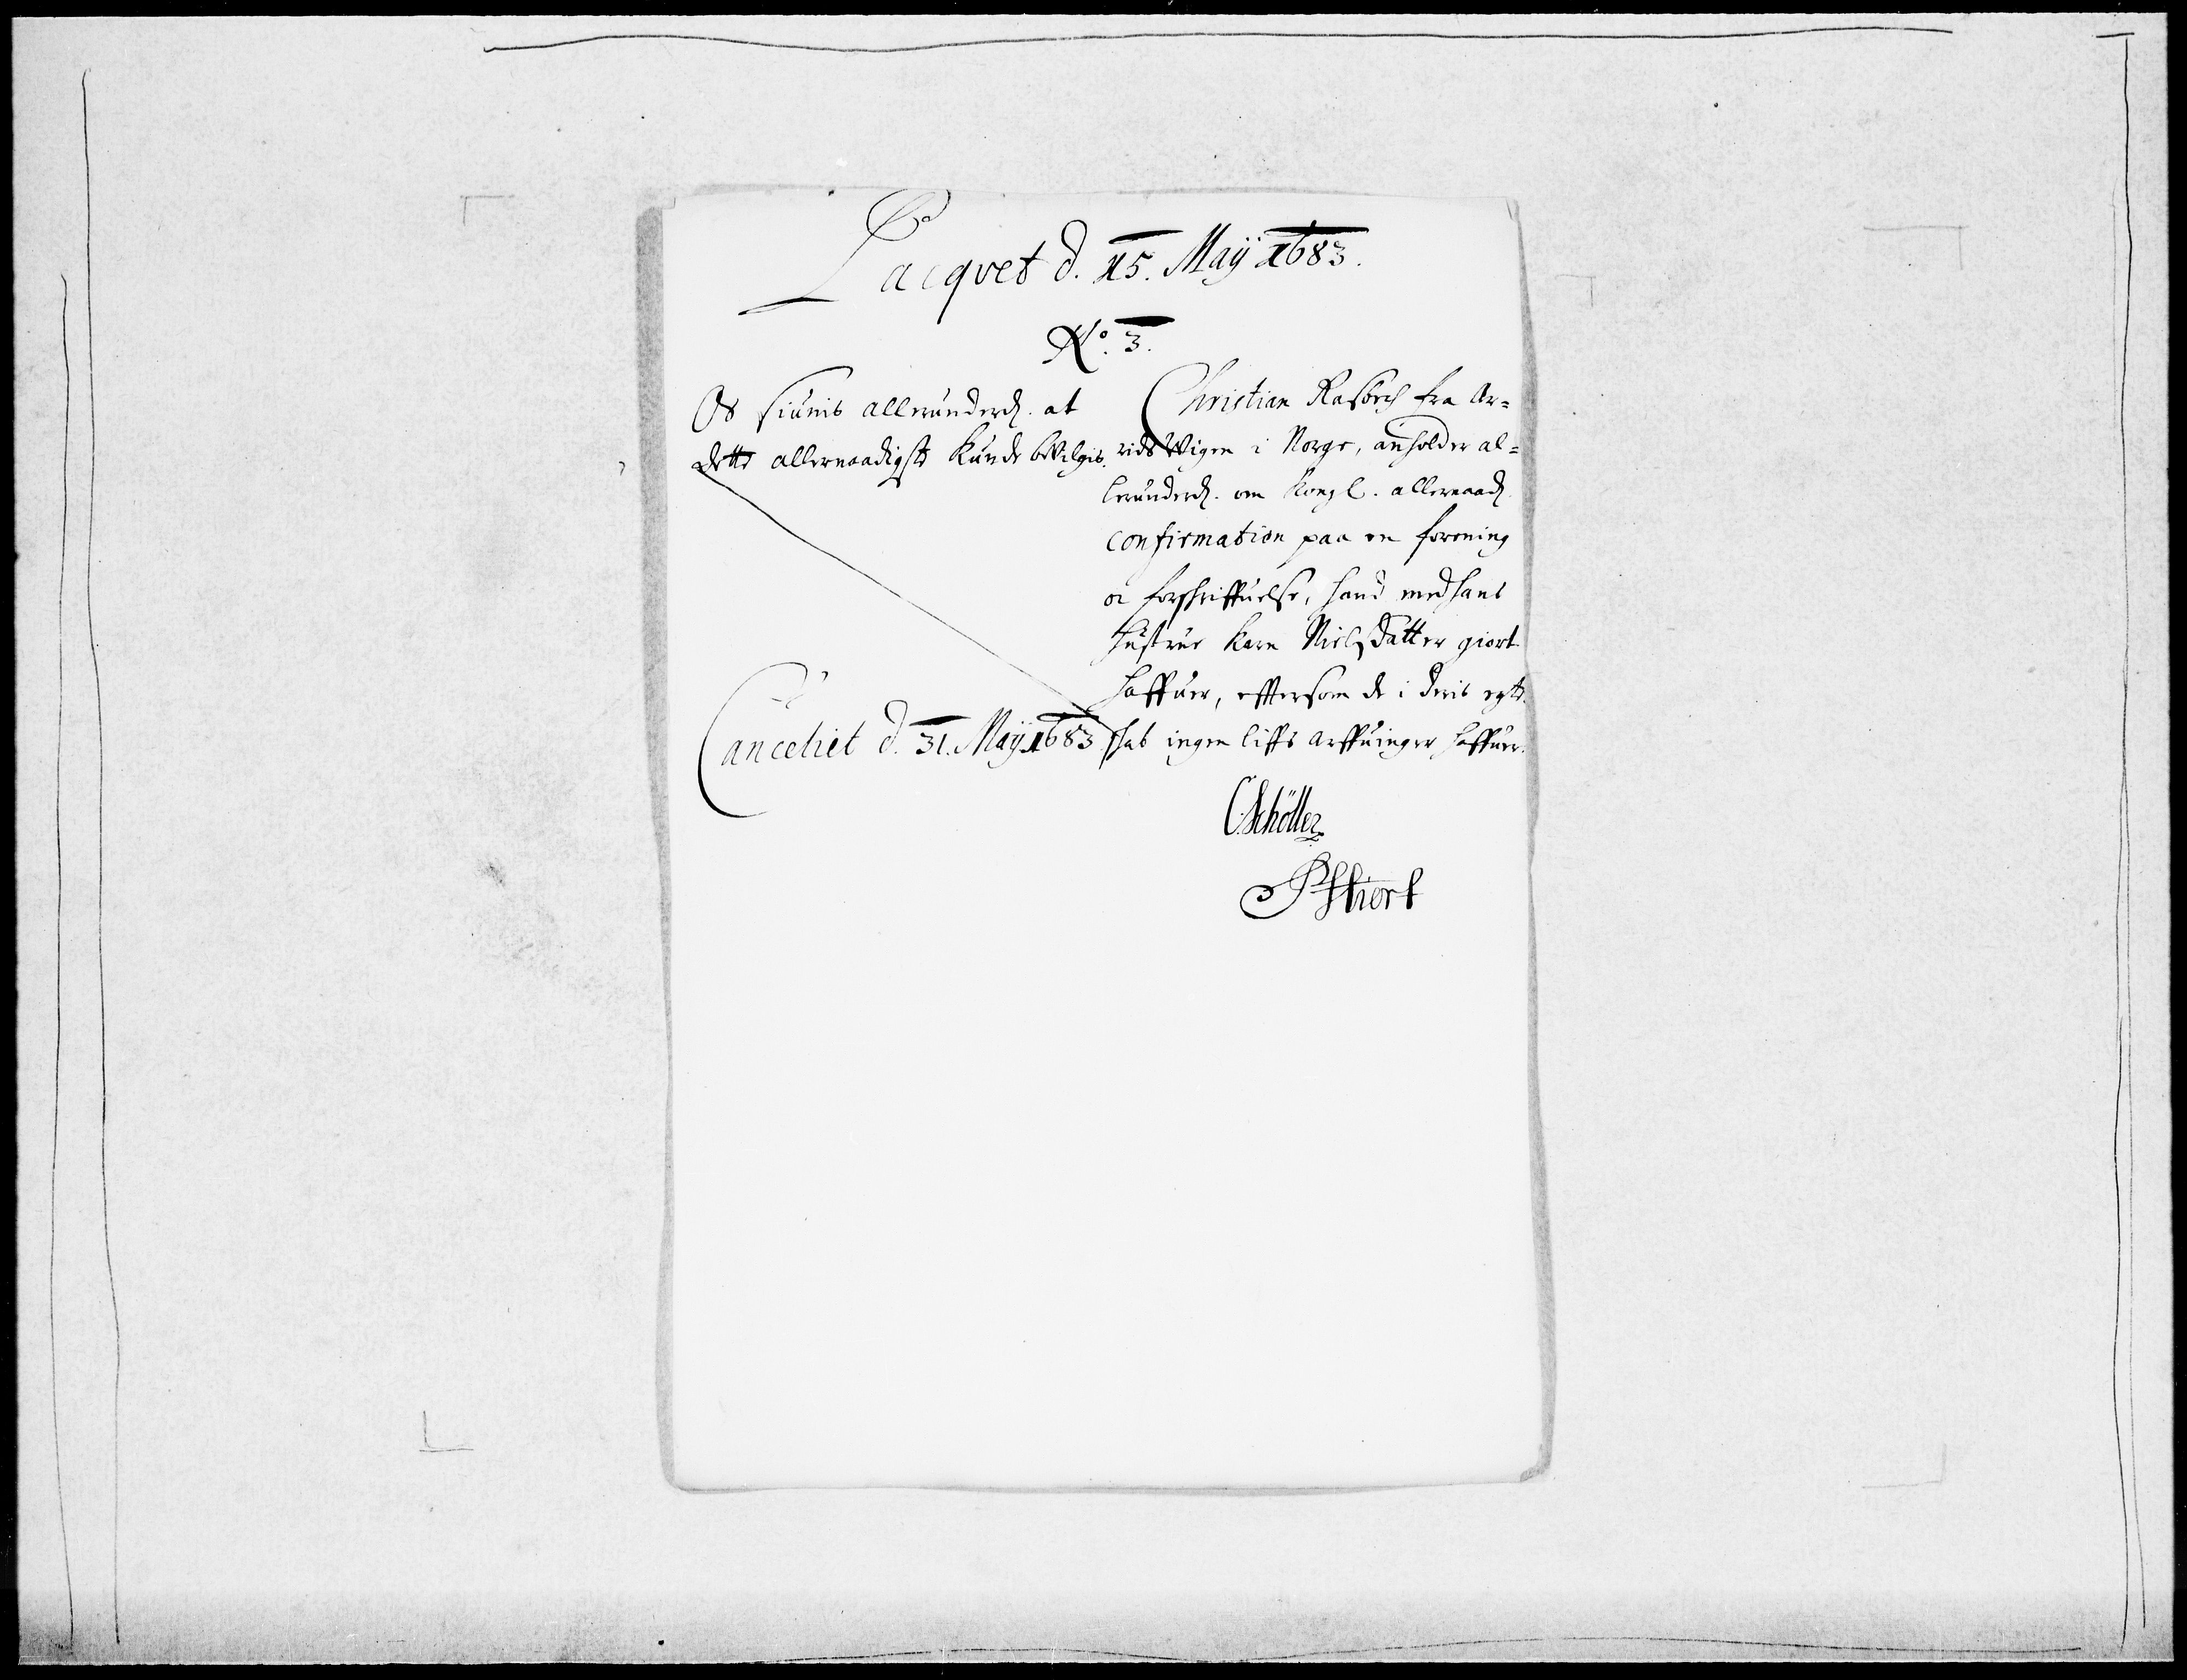 Pacqvet d. 15. Maij 1683.
No. 3.
Os siunis allerunderd. at
dette allernaadigste kunde bevilgis.
Christian Rasbech fra Ar=
ridsWigen i Norge, anholder al=
lerunderd. om Kongl. allernaad
confirmation paa en forening
oc forschriffuelse, hand med hans
hustrue Karn Nielsdatter giort
haffuer, effterson de i deris egte
schab ingen liffs arffuinger haffuer.
Cancel: d. 31. Maij 1683
C. Schöller